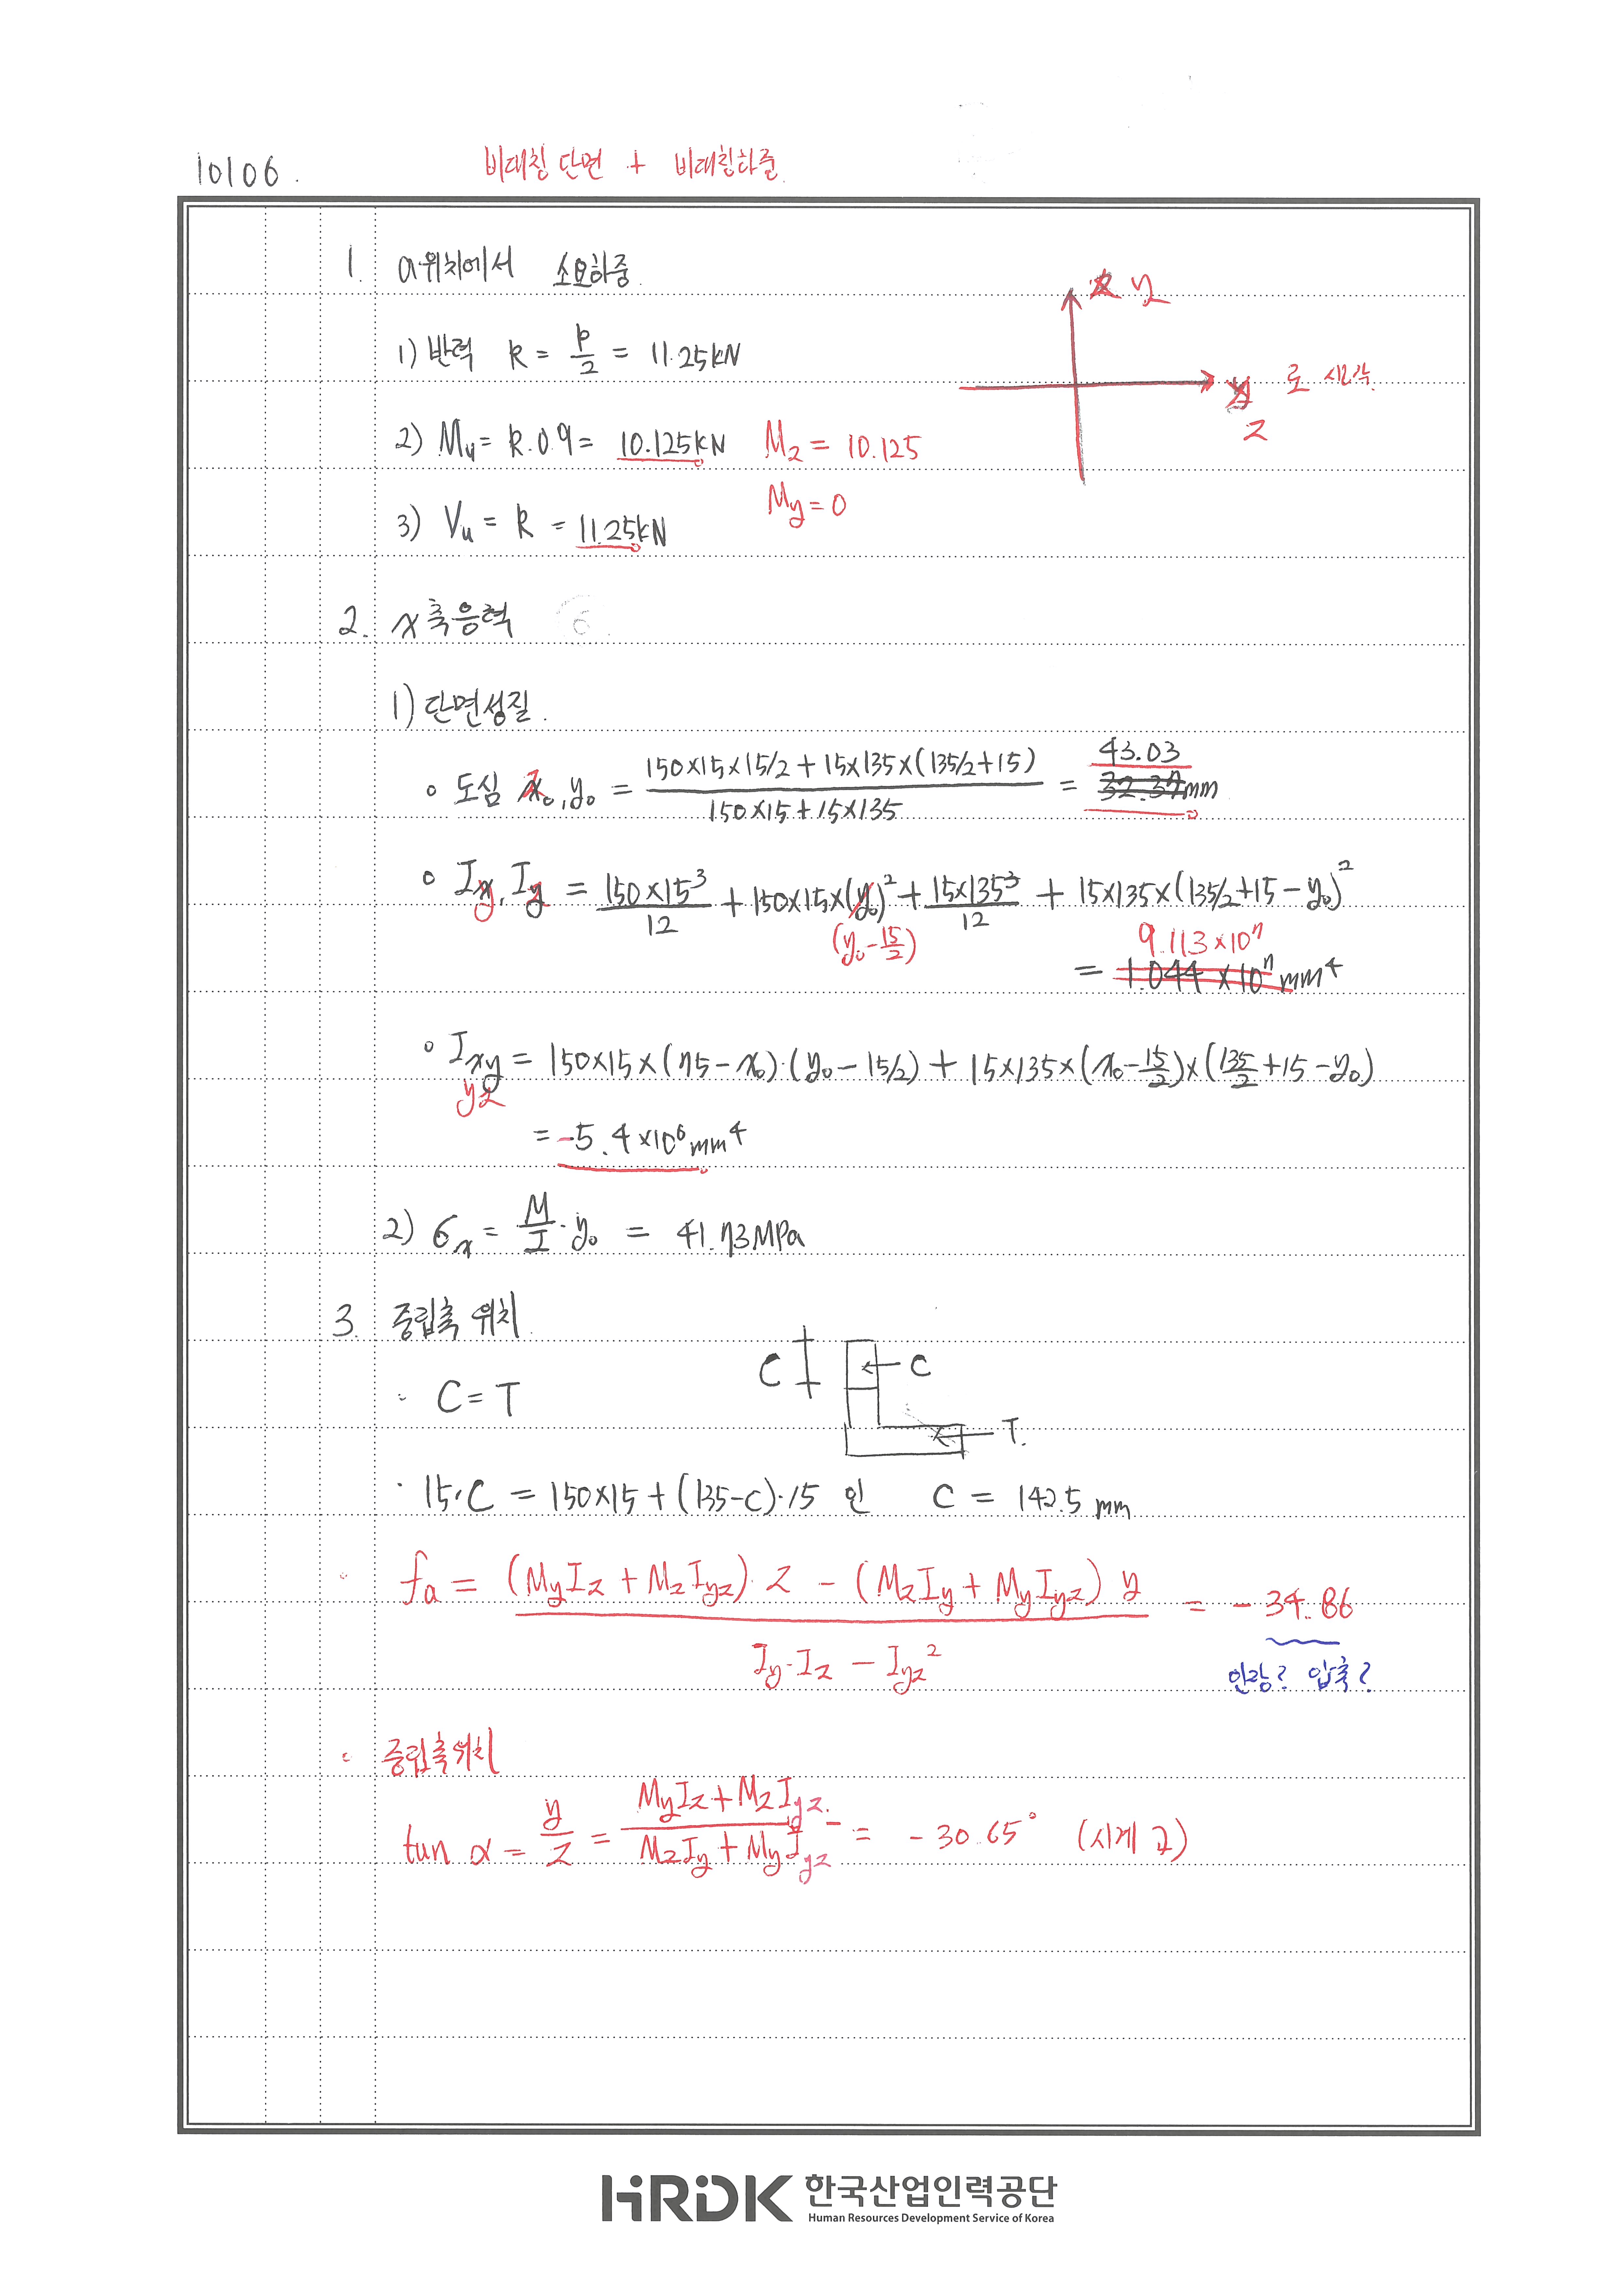 10106.
비대칭 단면 + 비대칭하중
1. a위치에서 소요하중
1) 반력 R = P/2 = 11.25kN
2) Mu = R·0.9 = 10.125kN Mz = 10.125
My = 0
3) Vu = R = 11.25kN
y
z 로 시작
2. x축응력
1) 단면성질.
∘ 도심 z₀, y₀ = (150×15×15/2 + 15×135×(135/2+15)) / (150×15+15×135) = 43.03 32.37mm
∘ Iy, Iz = 150×15³/12 + 150×15×(y₀)² + 15×135³/12 + 15×135×(135/2+15-y₀)²
(y₀-15/2)
9.113×10⁷
= 1.044×10⁷mm⁴
∘ Ixy = 150×15×(75-x₀)·(y₀-15/2) + 15×135×(x₀-15/2)×(135/2+15-y₀)
yz
= -5.4×10⁶mm⁴
2) σx = M/I·y₀ = 41.73MPa
3. 중립축 위치
C C
· C = T
T.
· 15·C = 150×15+(135-C)·15 인 C = 142.5mm
· fa = ((MyIz + MzIyz)·z - (MzIy + MyIyz) y) / (Iy·Iz - Iyz²) = -34.86
인장? 압축?
· 중립축위치
tan α = y/z = (MyIz+MzIyz) / (MzIy+MyIyz) = -30.65° (시계 방)
HRDK 한국산업인력공단
Human Resources Development Service of Korea